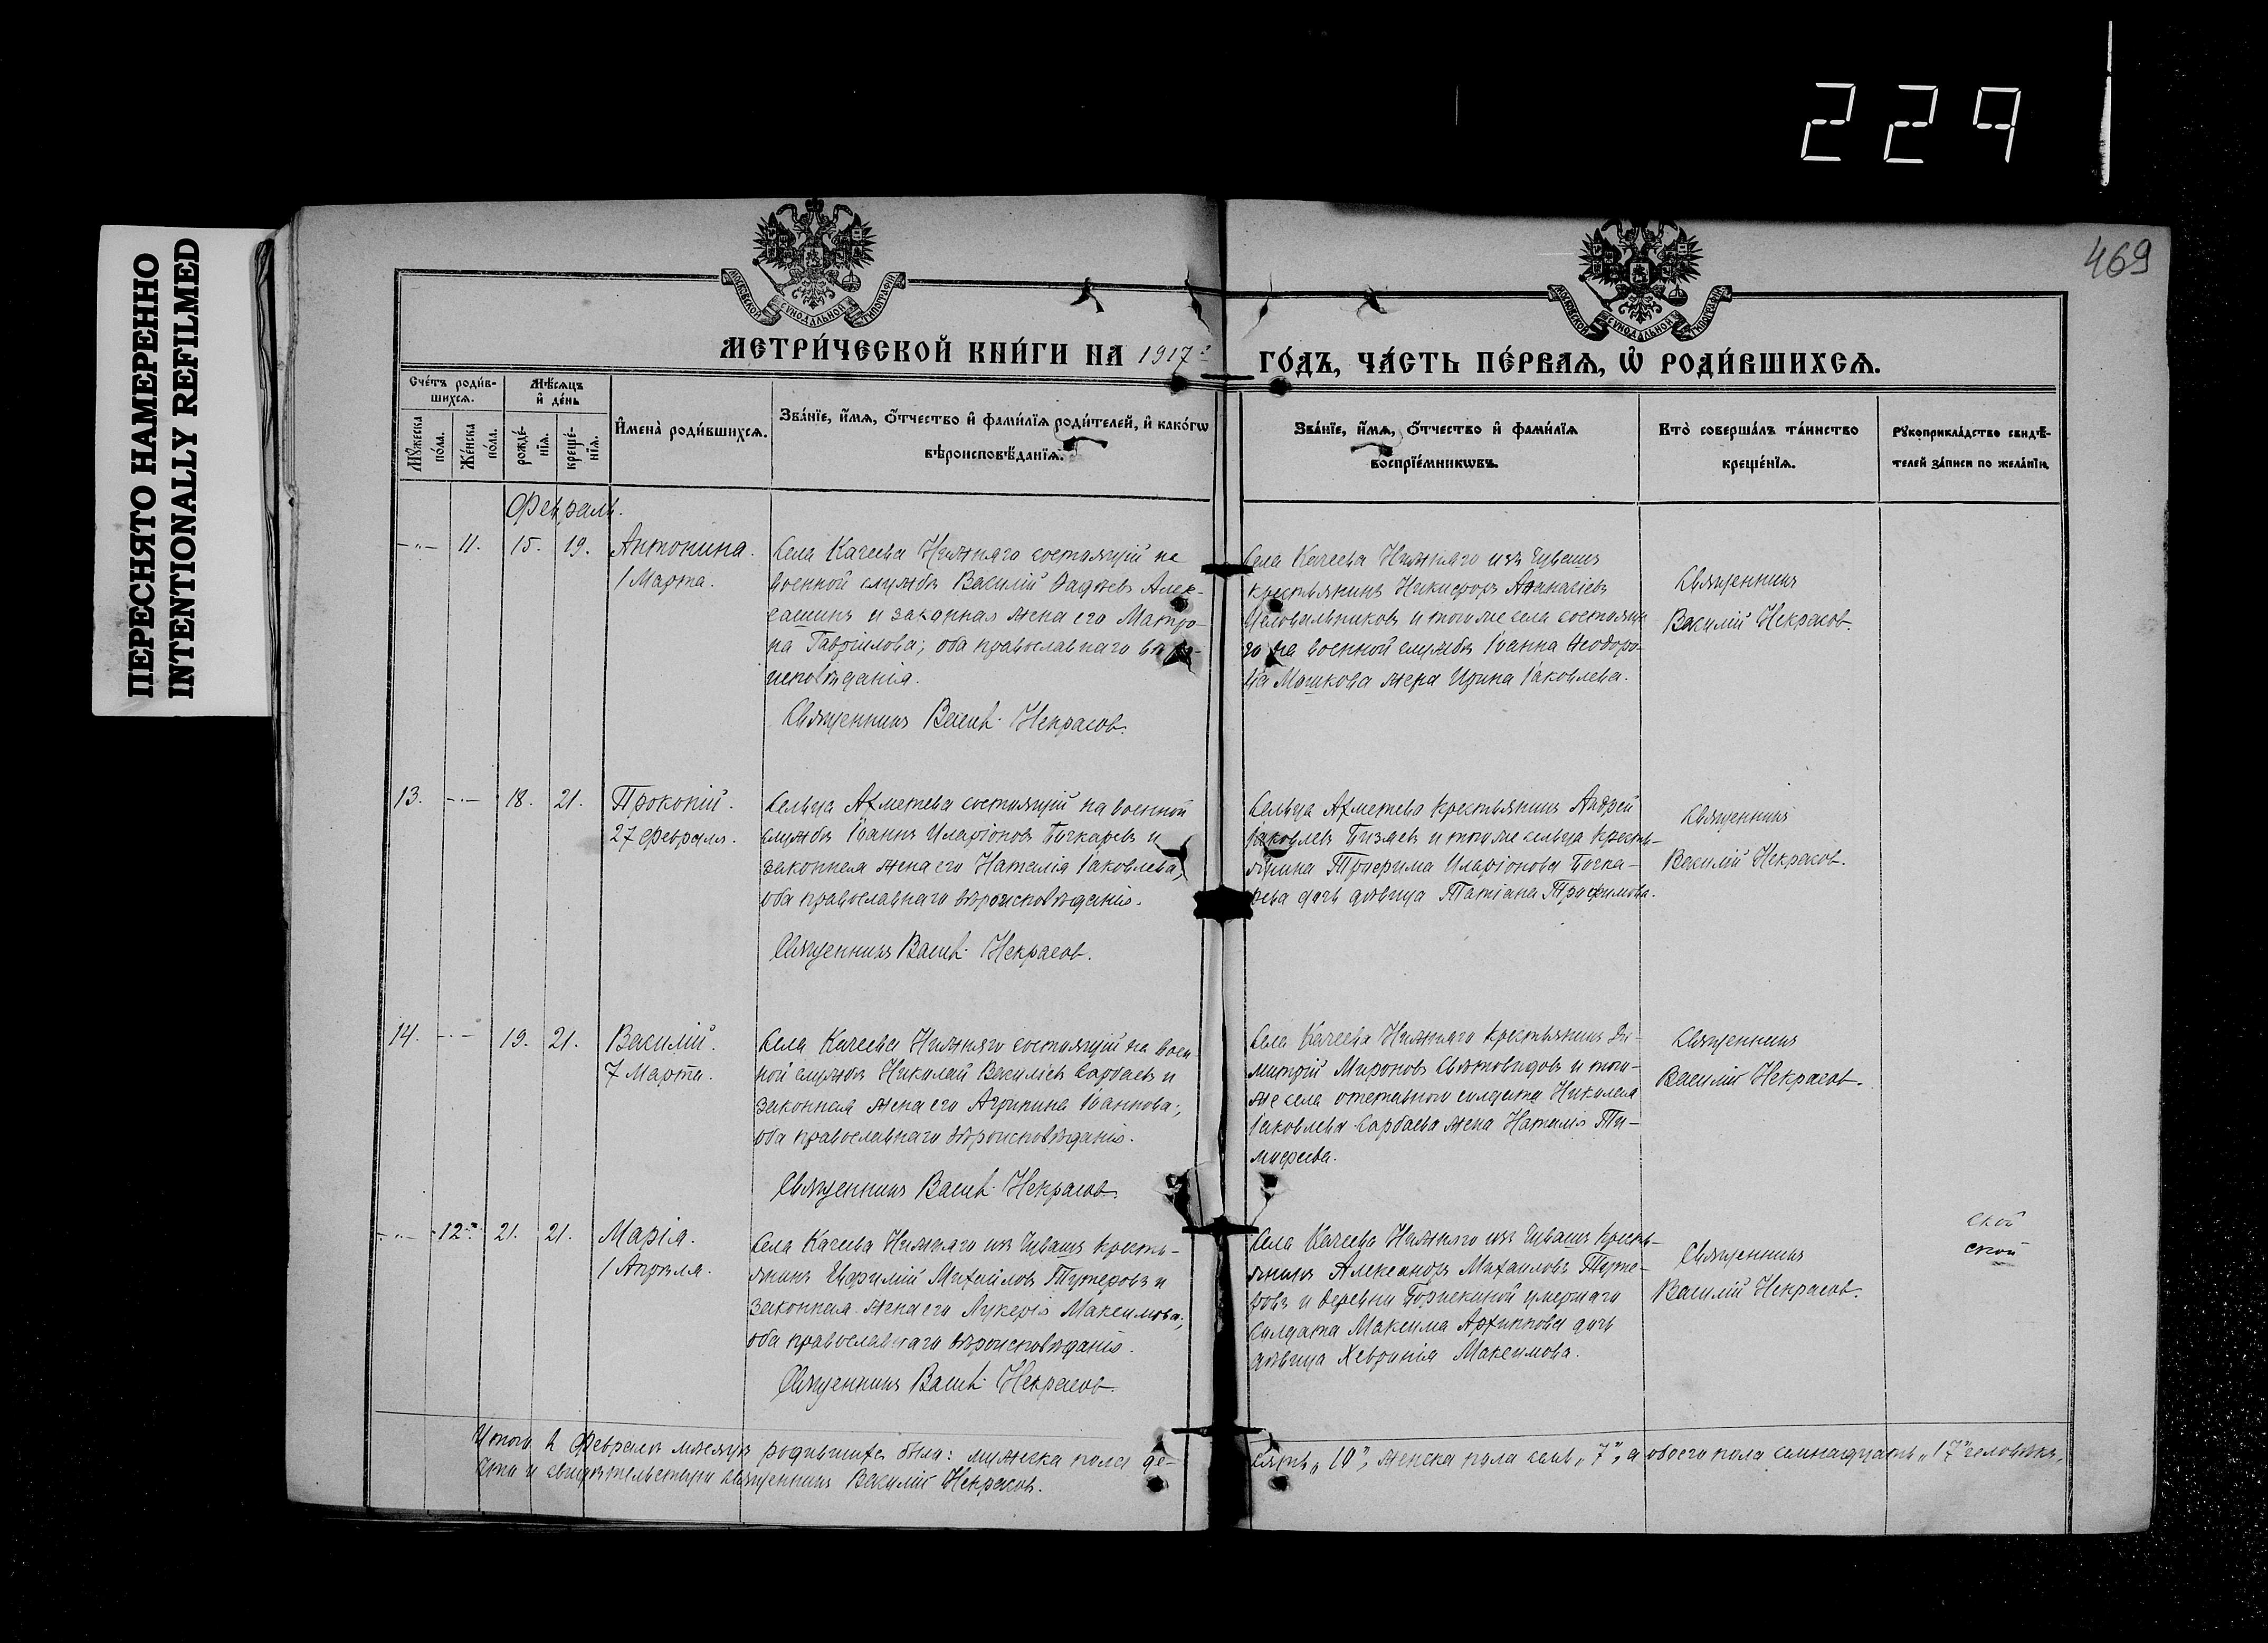 229
ПЕРЕСНЯТО НАМЕРЕННО
INTENTIONALLY REFILMED
469
МОСКОВСКОЙ СѴНОДАЛЬНОЙ ТИПОГРАФІИ
МОСКОВСКОЙ СѴНОДАЛЬНОЙ ТИПОГРАФІИ
МЕТРИ́ЧЕСКОЙ КНИ́ГИ НА 1917 й
ГО́ДЪ, ЧА́СТЬ ПЕ́РВАѦ, Ѡ҆ РОДИ́ВШИХСѦ.
Сче́тъ роди́в-
шихсѧ.
Мѣ́сѧцъ
и҆ де́нь
Мꙋ́жеска
по́ла.
Же́нска
по́ла.
рожде́-
нїѧ.
креще́-
нїѧ.
И҆мена̀ роди́вшихсѧ.
Зва́нїе, и҆́мѧ, ѻ҆́тчество и҆ фами́лїѧ роди́телей, и҆ како́гѡ
вѣроисповѣ́данїѧ.
Зва́нїе, и҆́мѧ, ѻ҆́тчество и҆ фами́лїѧ
воспрїе́мникѡвъ.
Кто̀ соверша́лъ та́инство
креще́нїѧ.
Рꙋкоприкла́дство свидѣ́-
телей за́писи по жела́нїю.
Февраль.
-„- 11. 15. 19. Антонина.
1 Марта.
Села Качеева Нижняго состоящій на
военной службѣ Василій Фадѣевъ Алек-
сашинъ и законная жена его Матро-
на Гавріилова; оба православнаго вѣро-
исповѣданія.
Священникъ Васил. Некрасов.
Села Качеева Нижняго изъ чувашъ
крестьянинъ Никифоръ Аѳанасіевъ
Целовальниковъ и того же села состояща-
го на военной службѣ Іоанна Ѳеодоро-
ва Мошкова жена Ирина Іаковлева.
Священникъ
Василій Некрасов.
13. -„- 18. 21. Прокопій.
27 Февраля.
Сельца Ахметева состоящій на военной
службѣ Іоаннъ Иларіоновъ Бочкаревъ и
законная жена его Наталія Іаковлева;
оба православнаго вѣроисповѣданія.
Священникъ Васил. Некрасов.
Сельца Ахметева крестьянинъ Андрей
Іаковлевъ Бизяевъ и того же сельца кресть-
янина Трифима Иларіонова Бочка-
рева дочь дѣвица Татіана Трифимова.
Священникъ
Василій Некрасов.
14. -„- 19. 21. Василій.
7 Марта.
Села Качеева Нижняго состоящій на воен-
ной службѣ Николай Василіевъ Сарбаевъ и
законная жена его Агрипина Іоаннова;
оба православнаго вѣроисповѣданія.
Священникъ Васил. Некрасов.
Села Качеева Нижняго крестьянинъ Ди-
митрій Мироновъ Святовидовъ и того-
же села отставного солдата Николая
Іаковлева Сарбаева жена Наталія Ти-
мофеева.
Священникъ
Василій Некрасов.
-„- 12. 21. 21. Марія.
1 Апрѣля.
Села Качеева Нижняго изъ чувашъ кресть-
янинъ Евфимій Михайловъ Тутеровъ и
законная жена его Лукерія Максимова;
оба православнаго вѣроисповѣданія.
Священникъ Васил. Некрасов.
Села Качеева Нижняго изъ чувашъ кресть-
янинъ Александръ Михаиловъ Туте-
ровъ и деревни умершаго
солдата Максима Архиппова дочь
дѣвица Хевронія Максимова.
Священникъ
Василій Некрасов.
ской
ской
Итого въ Февралѣ мѣсяцѣ родившихся было: мужеска пола де-
сять „10“, женска пола семь „7“, а обоего пола семнадцать „17“ человѣкъ.
Что и свидѣтельствую священникъ Василій Некрасов.